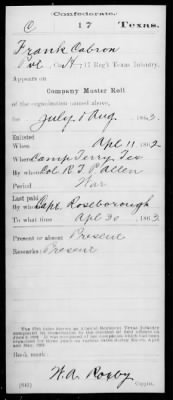 Confederate.
C 17 Texas.
Frank Cabron
Pvt, Co. H, 17 Reg't Texas Infantry.
Appears on
Company Muster Roll
of the organization named above,
for July & Aug, 1863.
Enlisted
When Apl 11, 1862
Where Camp Terry, Tex
By whom Col. R. T. P. Allen
Period War
Last paid
By whom Capt. Roseborough
To what time Apl 30, 1863
Present or absent Present
Remarks: Present
Book mark:
W. A. Roxby
Copyist.